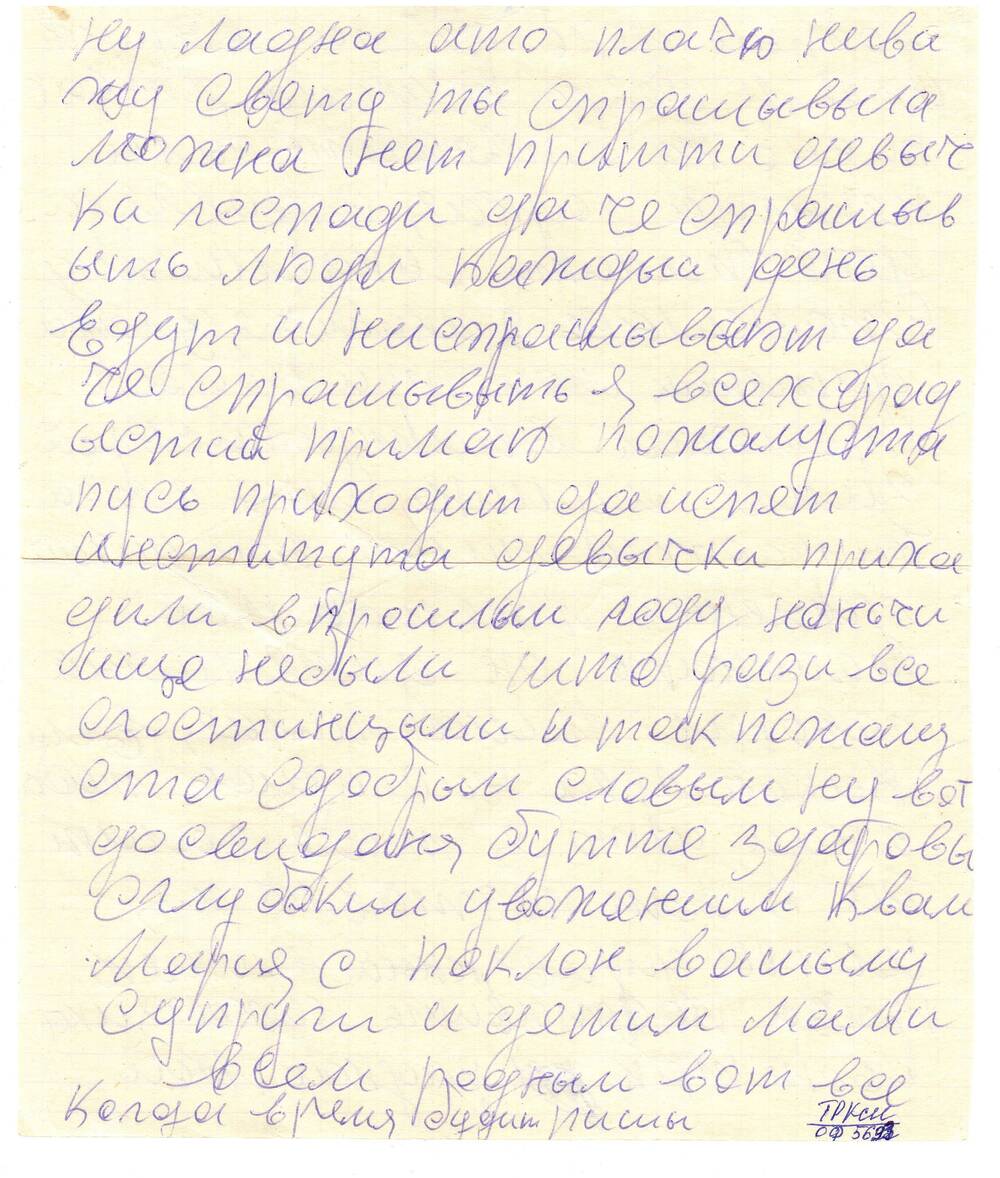 ну ладна ато плачю нива
жу свету ты спрашывыла
можна нет притти девыч
ка госпади да че спрашыв
ыть люди каждыи день
Едут иниспрашывыют да
че спрашывыть я всех срад
ыстии примаю пожалуста
пусь приходит даиспят
института девычки приха
дили впрошлым году наночи
ище небыли што рази все
сгостинцыми и так пожалу
ста сдобрым словым ну вот
досвиданя бутте здаровы
сглубоким уваженим квам
Мария с поклон вашыму
супруги и детим мами
всем родным вот все
Когда время будит пишы
ТРКСИ
ОФ 5693